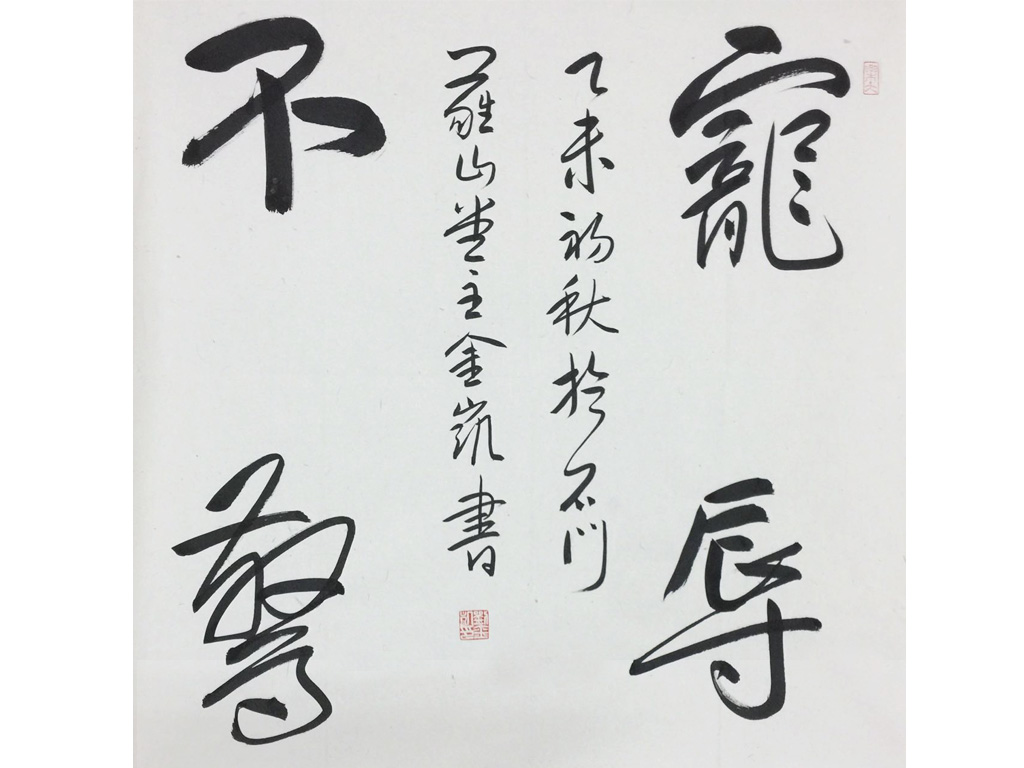 寵辱
乙未初秋於石門
山堂主金凱書
不驚